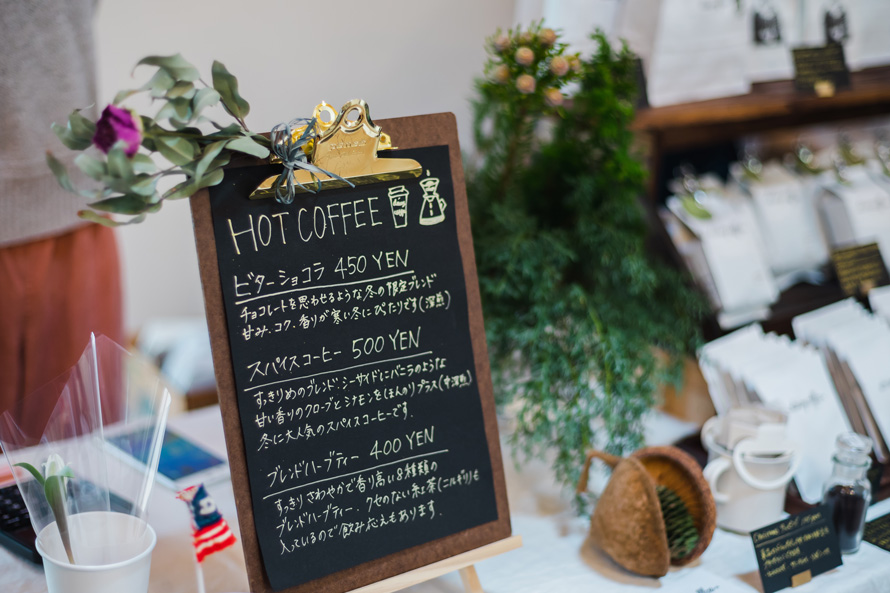 HOT COFFEE
ビターショコラ 450 YEN
チョコレートを思わせるような冬の限定ブレンド
甘み、コク、香りが寒い冬にぴたりです(深煎)
スパイスコーヒー 500 YEN
すきりめのブレンド:シーサイドにバニラのような
甘い香りのクローブとシナモンをほんのりプラス(中深煎)
冬に大人気のスパイスコーヒーです.
ブレンドハーブティー 400 YEN
すっきりさわやかで香り高い8種類の
ブレンドハーブティー. クセのない紅茶(ニルギリ)も
入っているので飲み応えもあります.